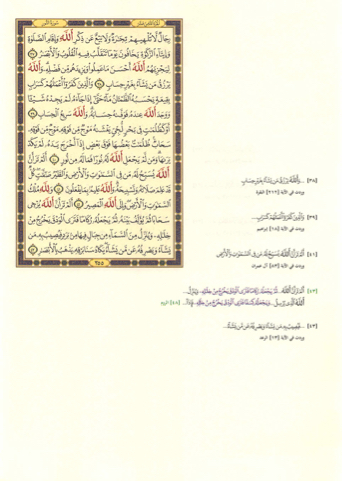 رِجَالٌ لَّا تُلْهِيهِمْ تِجَٰرَةٌ وَلَا بَيْعٌ عَن ذِكْرِ ٱللَّهِ وَإِقَامِ ٱلصَّلَوٰةِ
وَإِيتَآءِ ٱلزَّكَوٰةِ يَخَافُونَ يَوْمًا تَتَقَلَّبُ فِيهِ ٱلْقُلُوبُ وَٱلْأَبْصَٰرُ ٣٧
لِيَجْزِيَهُمُ ٱللَّهُ أَحْسَنَ مَا عَمِلُوا۟ وَيَزِيدَهُم مِّن فَضْلِهِۦ وَٱللَّهُ
يَرْزُقُ مَن يَشَآءُ بِغَيْرِ حِسَابٍ ٣٨ وَٱلَّذِينَ كَفَرُوٓا۟ أَعْمَٰلُهُمْ كَسَرَابٍ
بِقِيعَةٍ يَحْسَبُهُ ٱلظَّمْـَٔانُ مَآءً حَتَّىٰٓ إِذَا جَآءَهُۥ لَمْ يَجِدْهُ شَيْـًٔا
وَوَجَدَ ٱللَّهَ عِندَهُۥ فَوَفَّىٰهُ حِسَابَهُۥ وَٱللَّهُ سَرِيعُ ٱلْحِسَابِ ٣٩
أَوْ كَظُلُمَٰتٍ فِى بَحْرٍ لُّجِّىٍّ يَغْشَىٰهُ مَوْجٌ مِّن فَوْقِهِۦ مَوْجٌ مِّن فَوْقِهِۦ
سَحَابٌ ظُلُمَٰتٌۢ بَعْضُهَا فَوْقَ بَعْضٍ إِذَآ أَخْرَجَ يَدَهُۥ لَمْ يَكَدْ
يَرَىٰهَا وَمَن لَّمْ يَجْعَلِ ٱللَّهُ لَهُۥ نُورًا فَمَا لَهُۥ مِن نُّورٍ ٤٠ أَلَمْ تَرَ أَنَّ
ٱللَّهَ يُسَبِّحُ لَهُۥ مَن فِى ٱلسَّمَٰوَٰتِ وَٱلْأَرْضِ وَٱلطَّيْرُ صَٰٓفَّٰتٍ كُلٌّ
قَدْ عَلِمَ صَلَاتَهُۥ وَتَسْبِيحَهُۥ وَٱللَّهُ عَلِيمٌۢ بِمَا يَفْعَلُونَ ٤١ وَلِلَّهِ مُلْكُ
ٱلسَّمَٰوَٰتِ وَٱلْأَرْضِ وَإِلَى ٱللَّهِ ٱلْمَصِيرُ ٤٢ أَلَمْ تَرَ أَنَّ ٱللَّهَ يُزْجِى
سَحَابًا ثُمَّ يُؤَلِّفُ بَيْنَهُۥ ثُمَّ يَجْعَلُهُۥ رُكَامًا فَتَرَى ٱلْوَدْقَ يَخْرُجُ مِنْ
خِلَٰلِهِۦ وَيُنَزِّلُ مِنَ ٱلسَّمَآءِ مِن جِبَالٍ فِيهَا مِنۢ بَرَدٍ فَيُصِيبُ بِهِۦ مَن
يَشَآءُ وَيَصْرِفُهُۥ عَن مَّن يَشَآءُ يَكَادُ سَنَا بَرْقِهِۦ يَذْهَبُ بِٱلْأَبْصَٰرِ ٤٣
٣٥٥
[٣٨] ...وَٱللَّهُ يَرْزُقُ مَن يَشَآءُ بِغَيْرِ حِسَابٍ
وردت في الآية [٢١٢] البقرة
[٣٩] وَٱلَّذِينَ كَفَرُوٓا۟ أَعْمَٰلُهُمْ كَسَرَابٍ...
وردت في الآية [١٨] إبراهيم
[٤١] أَلَمْ تَرَ أَنَّ ٱللَّهَ يُسَبِّحُ لَهُۥ مَن فِى ٱلسَّمَٰوَٰتِ وَٱلْأَرْضِ
وردت في الآية [٨٣] آل عمران
[٤٣] أَلَمْ تَرَ أَنَّ ٱللَّهَ... ثُمَّ يَجْعَلُهُۥ رُكَامًا فَتَرَى ٱلْوَدْقَ يَخْرُجُ مِنْ خِلَٰلِهِۦ وَيُنَزِّلُ...
ٱللَّهُ ٱلَّذِى يُرْسِلُ... وَيَجْعَلُهُۥ كِسَفًا فَتَرَى ٱلْوَدْقَ يَخْرُجُ مِنْ خِلَٰلِهِۦ فَإِذَآ... [٤٨] الروم
[٤٣] ...فَيُصِيبُ بِهِۦ مَن يَشَآءُ وَيَصْرِفُهُۥ عَن مَّن يَشَآءُ...
وردت في الآية [١٣] الرعد